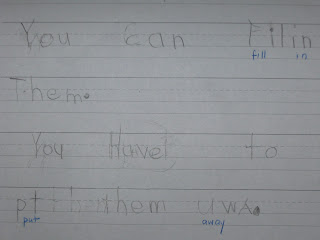 You can Filin
fill in
Them.
You Havet to
pt them uwa.
put away